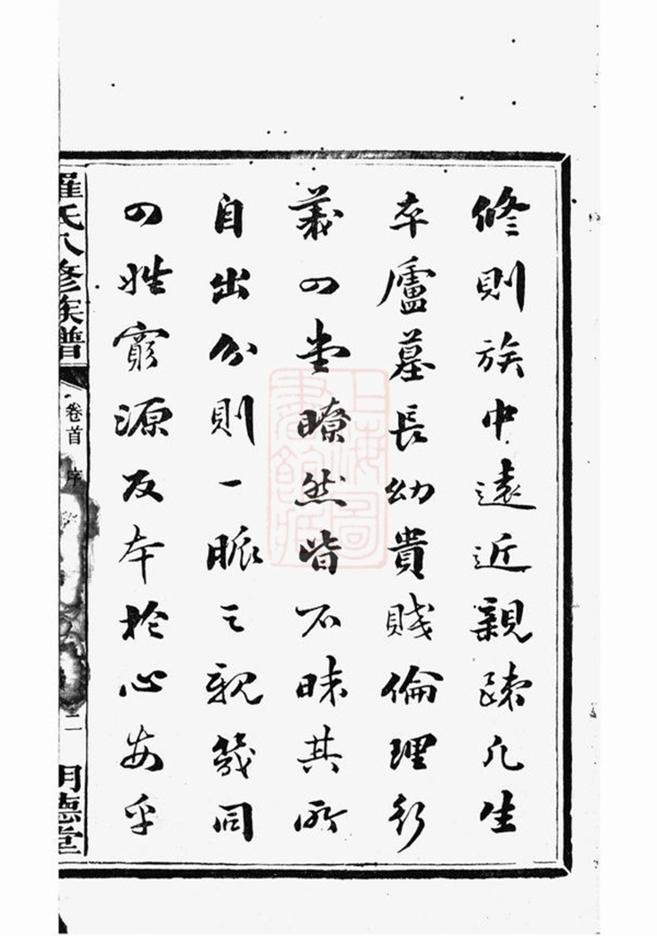 修則族中遠近親疎凡生
卒廬墓長幼貴賤倫理
義瞭然皆不昧其所
自出分則一脈之親幾同
姓窮源反本於心安乎
羅氏八修族譜
卷首 序
二
明德堂
上海圖書館藏